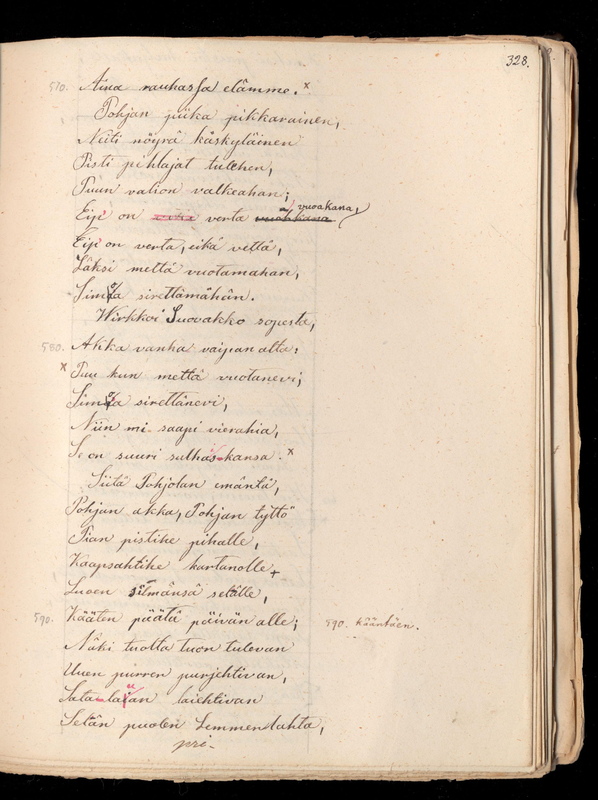 328.
570. Aina rauhassa elämme. x
Pohjan piika pikkarainen,
Neiti nöyrä käskyläinen
Pisti pihlajat tulehen,
Puun valion valkeahan;
Eip' on verta vuoakana,
Eip' on verta, eikä vettä,
Läksi mettä vuotamahan,
Simoa sirettämähän.
Wirkkoi Suovakko sopesta,
580. Akka vanha vaipan alta:
x Puu kun mettä vuotanevi,
Simoa sirettänevi,
Niin mi saapi vierahia,
Se on suuri sulhaiskansa. x
Siitä Pohjolan emäntä,
Pohjan akka, Pohjan tyttö
Pian pistihe pihalle,
Kaapsahtihe kartanolle,
Luoen silmänsä selälle,
590. Kääten päätä päivän alle; 590. kääntäen.
Näki tuolta tuon tulevan
Uuen purren purjehtivan,
Satalauan laiehtivan
Selän puolen Lemmenlahta,
pri-